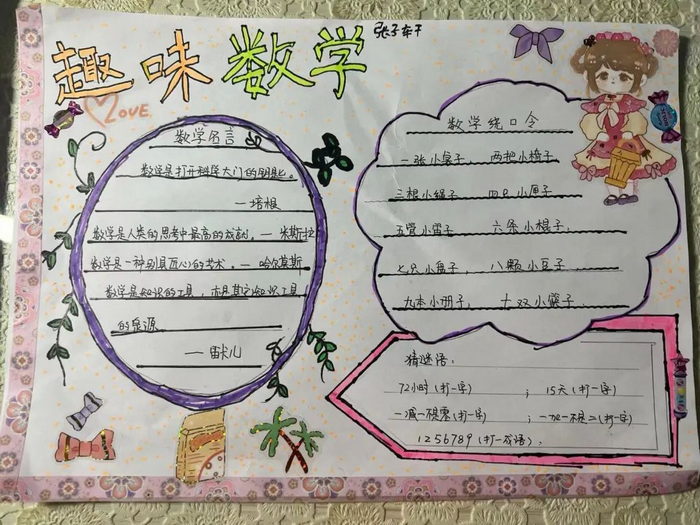 趣味数学
LOVE
数学名言
数学是打开科学大门的钥匙。
—培根
数学是人类的思考中最高的成就,—米斯拉
数学是一种别具匠心的艺术。—哈尔莫斯
数学是知识的工具,亦是其它知识工具
的泉源
—笛卡儿
数学绕口令
一张小桌子, 两把小椅子
三根小绳子 四只小匣子
五管小笛子 六条小棍子,
七只小盘子, 八颗小豆子
九本小册子, 十双小筷子.
猜谜语:
72小时(打一字) ; 15天(打一字)
一减一不是零(打一字) ; 一加一不是二(打一字)
1256789(打一成语);